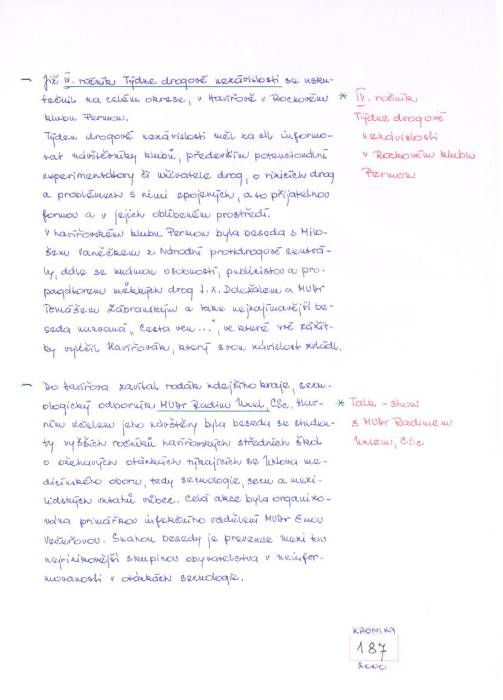 – Již IV. ročník Týdne drogové nezávislosti se usku-
tečnil na celém okrese, v Havířově v Rockovém
klubu Permon.
Týden drogové nezávislosti měl za cíl informo-
vat návštěvníky klubů, především potencionální
experimentátory či uživatele drog, o rizicích drog
a problémech s nimi spojených, a to přijatelnou
formou a v jejich oblíbeném prostředí.
V havířovském klubu Permon byla beseda s Milo-
šem Vaněčkem z Národní protidrogové centrá-
ly, dále se známou osobností, publicistou a pro-
pagátorem měkkých drog J. X. Doležalem a MUDr
Tomášem Zábranským a také nejzajímavější be-
seda nazvaná „Cesta ven...", ve které své zážit-
ky vylíčil Havířovák, který svou závislost zvládl.
* IV. ročník
Týdne drogové
nezávislosti
v Rockovém klubu
Permon
– Do Havířova zavítal rodák zdejšího kraje, sexu-
ologický odborník MUDr Radim Uzel, CSc. Hlav-
ním účelem jeho návštěvy byla beseda se studen-
ty vyšších ročníků havířovských středních škol
o ožehavých otázkách týkajících se Uzlova me-
dicínského oboru, tedy sexuologie, sexu a mezi-
lidských vztahů vůbec. Celá akce byla organizo-
vána primářkou infekčního oddělení MUDr Evou
Večeřovou. Snahou besedy je prevence mezi tou
nejrizikovější skupinou obyvatelstva v neinfor-
movanosti v otázkách sexuologie.
* Talk-show
s MUDr Radimem
Uzlem, CSc.
KRONIKA
187
2000